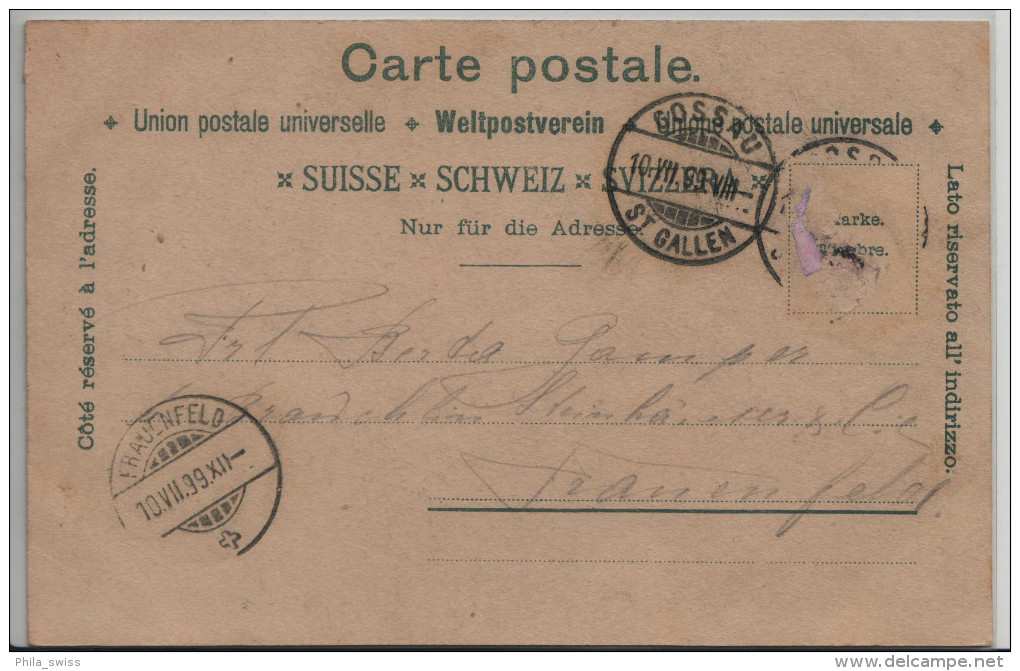 Carte postale.
Union postale universelle Weltpostverein Unione postale universale
SUISSE × SCHWEIZ × SVIZZERA
Nur für die Adresse.
Côté réservé à l'adresse.
Lato riservato all' indirizzo.
GOSSAU
10.VII.99.VIII
ST GALLEN
Marke.
Timbre.
Frl Berta Gamper
Steinhäuser & Cie
Frauenfeld
FRAUENFELD
10.VII.99.XII
Phila_swiss
delcampe.net